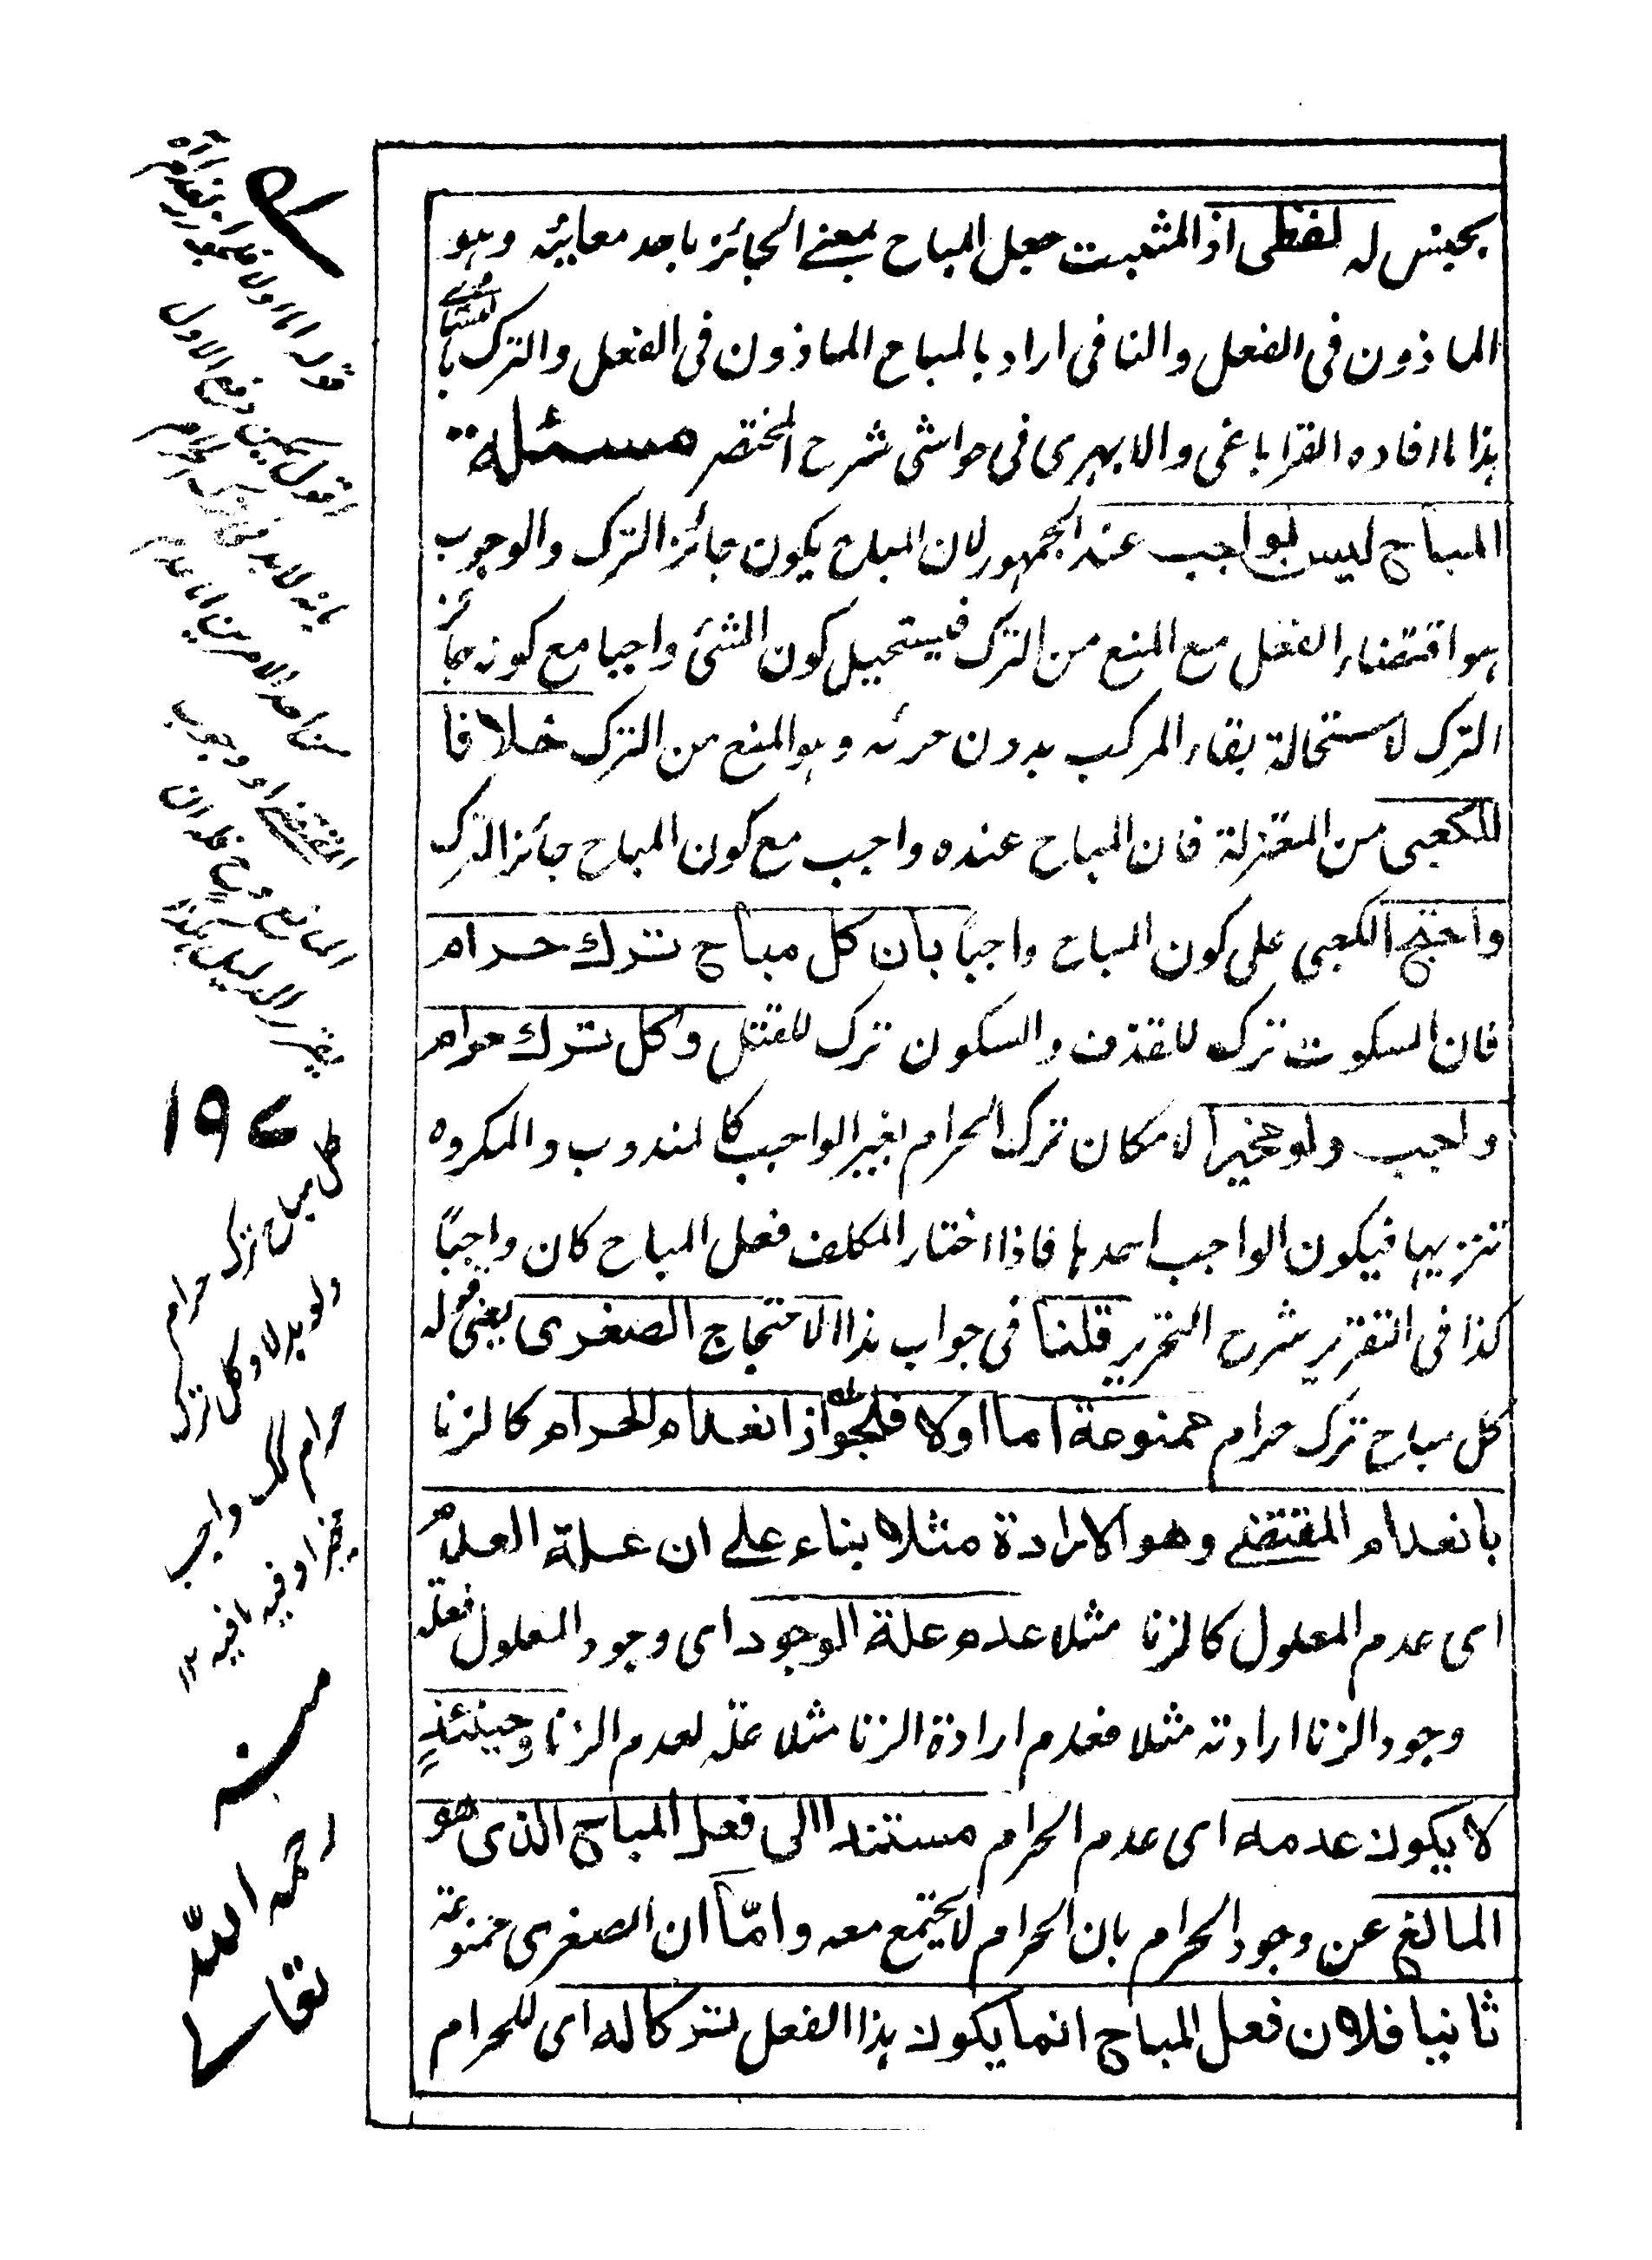 بجنس له لفظى اذ المثبت جعل المباح بمعنى الجائز باحد معانيه وهو
الماذون فى الفعل والنافى اراد بالمباح الماذون فى الفعل والترك بالتساوى
هذا ما افاده القراباغى والابهرى فى حواشى شرح المختصر مسئلة
المباح ليس بواجب عند الجمهور لان المباح يكون جائز الترك والوجوب
هو اقتضاء الفعل مع المنع من الترك فيستحيل كون الشئ واجبا مع كونه جائز
الترك لاستحالة بقاء المركب بدون جزئه وهو المنع من الترك خلافا
للكعبى من المعتزلة فان المباح عنده واجب مع كون المباح جائز الترك
واحتج الكعبى على كون المباح واجبا بان كل مباح ترك حرام
فان السكوت ترك للقذف والسكون ترك للقتل وكل ترك حرام
واجب ولو مخيرا لامكان ترك الحرام بغير الواجب كالمندوب والمكروه
تنزيها فيكون الواجب احدها فاذا اختار المكلف فعل المباح كان واجبًا
كذا فى التقرير شرح التحرير قلنا فى جواب هذا الاحتجاج الصغرى يعنى قوله
كل مباح ترك حرام ممنوعة اما اولا فلجواز انعدام الحرام كالزنا
بانعدام المقتضى وهو الارادة مثلا بناء على ان علة العدم
اى عدم المعلول كالزنا مثلا عدم علة الوجود اى وجود المعلول فعلة
وجود الزنا ارادته مثلا فعدم ارادة الزنا مثلا علة لعدم الزنا وحينئذٍ
لا يكون عدمه اى عدم الحرام مستندا الى فعل المباح الذى هو
المانع عن وجود الحرام بان الحرام لا يجتمع معه وامّا ان الصغرى ممنوعة
ثانيا فلان فعل المباح انما يكون هذا الفعل تركا له اى للحرام
قوله اما اولا فلجواز انعدام آه
اقول يمكن دفع الاول
بانه لابد فى ترك الحرام
من احد الامرين اما عدم
المقتضى او وجوب
المانع وح فله ان
يقرر الدليل هكذا
١٩٦
كل مباح ترك حرام
ولو بدلا وكل ترك
حرام كك واجب
مخيرا وفيه ما فيه ١٢
منه
رحمه الله
تعالى